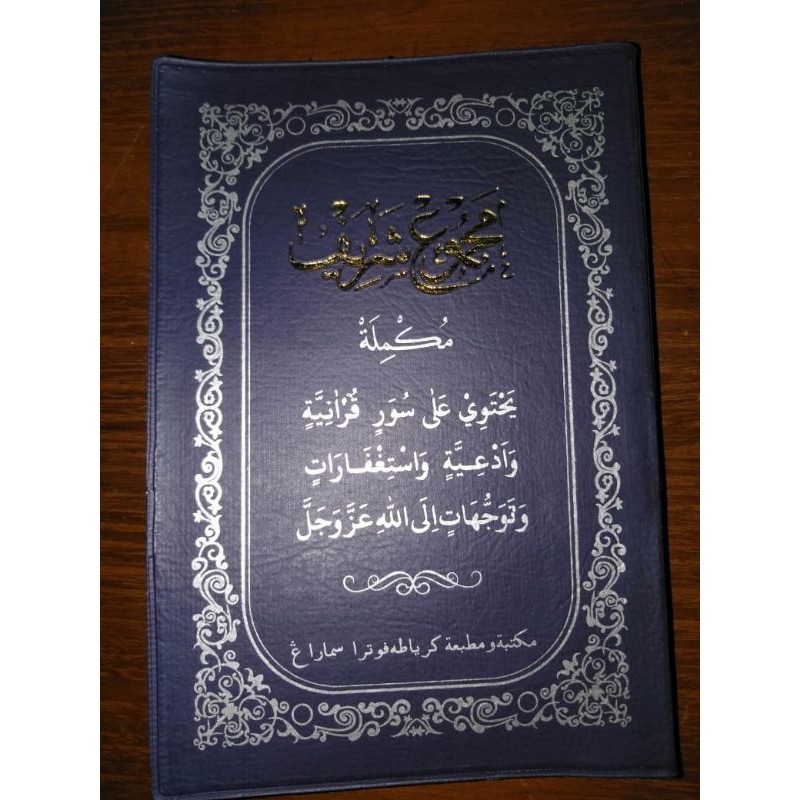 مَجْمُوْعْ شَرِيْف
مُكَمِّلَةْ
يَحْتَوِيْ عَلٰى سُوَرٍ قُرْاٰنِيَّةٍ
وَاَدْعِيَّةٍ وَاسْتِغْفَارَاتٍ
وَتَوَجُّهَاتٍ اِلَى اللّٰهِ عَزَّ وَجَلَّ
مكتبة ومطبعة كرياطه فوترا سماراڠ